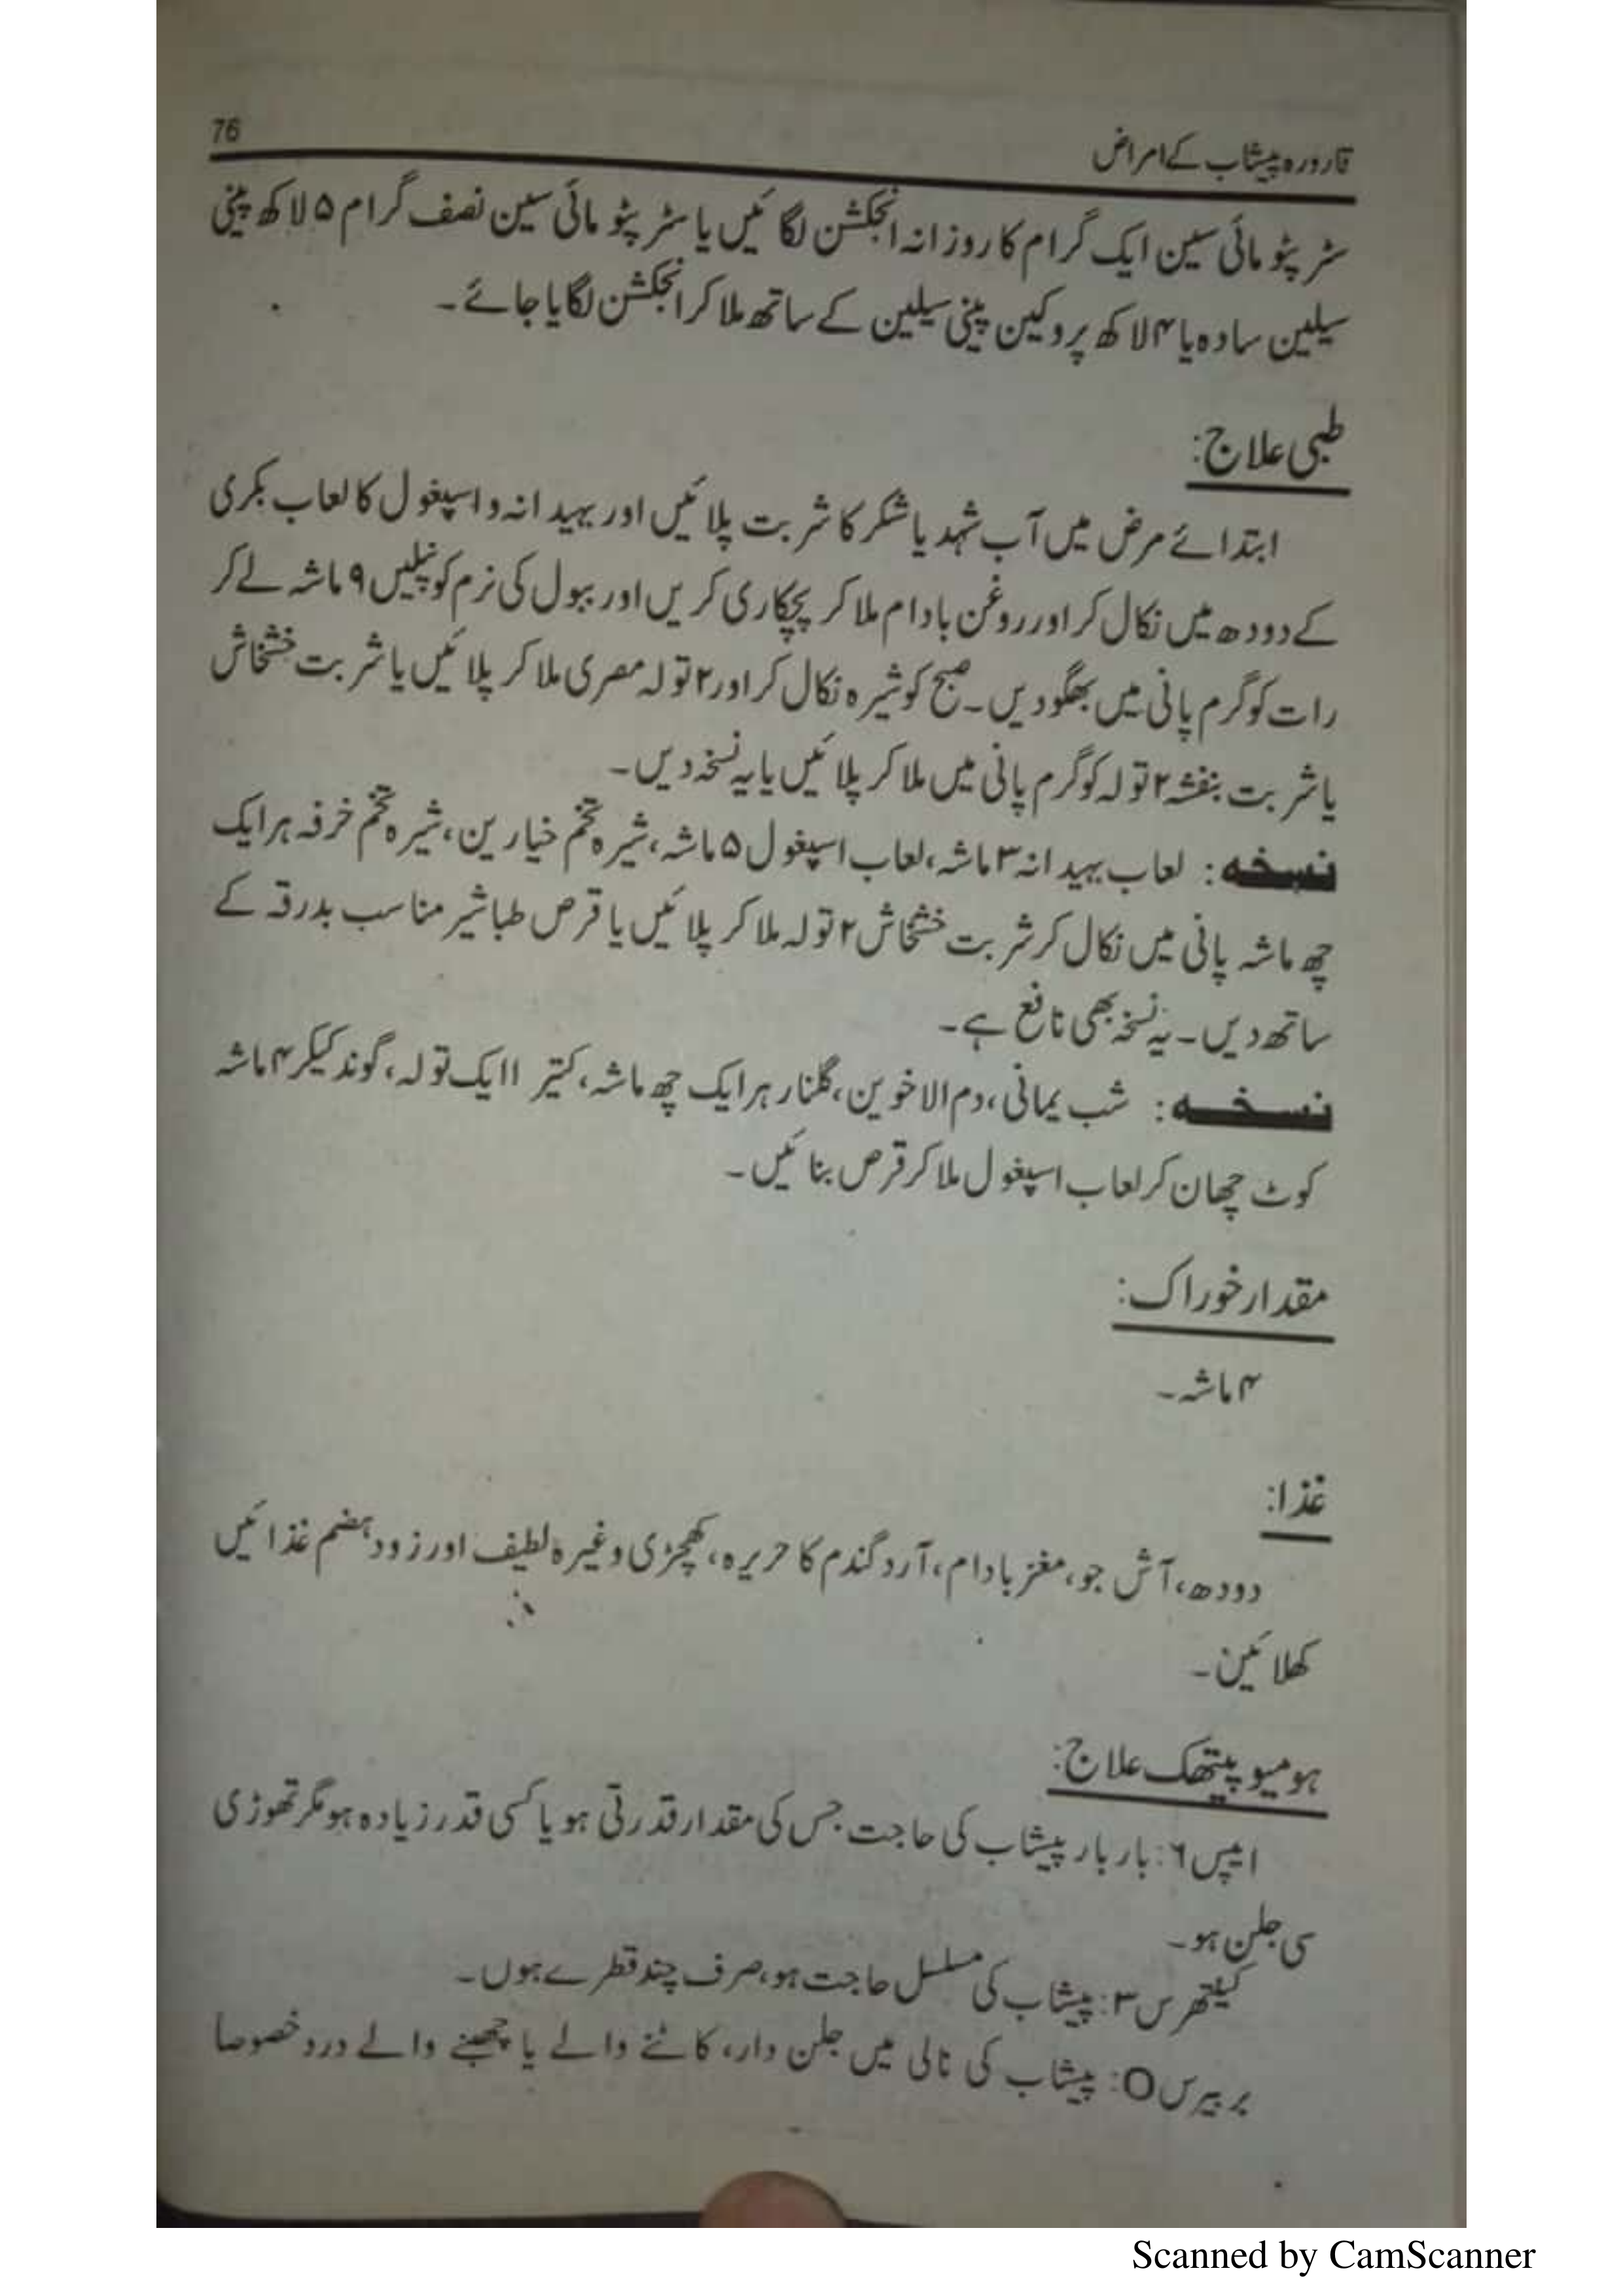 76
قارورہ پیشاب کے امراض
سٹرپٹو مائی سین ایک گرام کا روزانہ انجکشن لگائیں یا سٹرپٹو مائی سین نصف گرام ۵ لاکھ پنی
سیلین سادہ یا ۴ لاکھ پروکین پنی سیلین کے ساتھ ملا کر انجکشن لگایا جائے۔
طبی علاج:
ابتدائے مرض میں آب شہد یا شکر کا شربت پلائیں اور بہیدانہ و اسپغول کا لعاب بکری
کے دودھ میں نکال کر اور روغن بادام ملا کر پچکاری کریں اور ببول کی نرم کونپلیں ۹ ماشہ لے کر
رات کو گرم پانی میں بھگو دیں۔ صبح کو شیرہ نکال کر اور ۲ تولہ مصری ملا کر پلائیں یا شربت خشخاش
یا شربت بنفشہ ۲ تولہ کو گرم پانی میں ملا کر پلائیں یا یہ نسخہ دیں۔
نسخہ: لعاب بہیدانہ ۳ ماشہ، لعاب اسپغول ۵ ماشہ، شیرہ تخم خیارین، شیرہ تخم خرفہ ہر ایک
چھ ماشہ پانی میں نکال کر شربت خشخاش ۲ تولہ ملا کر پلائیں یا قرص طباشیر مناسب بدرقہ کے
ساتھ دیں۔ یہ نسخہ بھی نافع ہے۔
نسخہ: شب یمانی، دم الاخوین، گلنار ہر ایک چھ ماشہ، کتیرا ایک تولہ، گوند کیکر ۴ ماشہ
کوٹ چھان کر لعاب اسپغول ملا کر قرص بنائیں۔
مقدار خوراک:
۴ ماشہ۔
غذا:
دودھ، آش جو، مغز بادام، آرد گندم کا حریرہ، کھچڑی وغیرہ لطیف اور زود ہضم غذائیں
کھلائیں۔
ہومیو پیتھک علاج:
ایپس ۶: بار بار پیشاب کی حاجت جس کی مقدار قدرتی ہو یا کسی قدر زیادہ ہو مگر تھوڑی
سی جلن ہو۔
کینتھرس ۳: پیشاب کی مسلسل حاجت ہو، صرف چند قطرے ہوں۔
بربیرس O: پیشاب کی نالی میں جلن دار، کاٹنے والے یا چھبنے والے درد خصوصا
Scanned by CamScanner